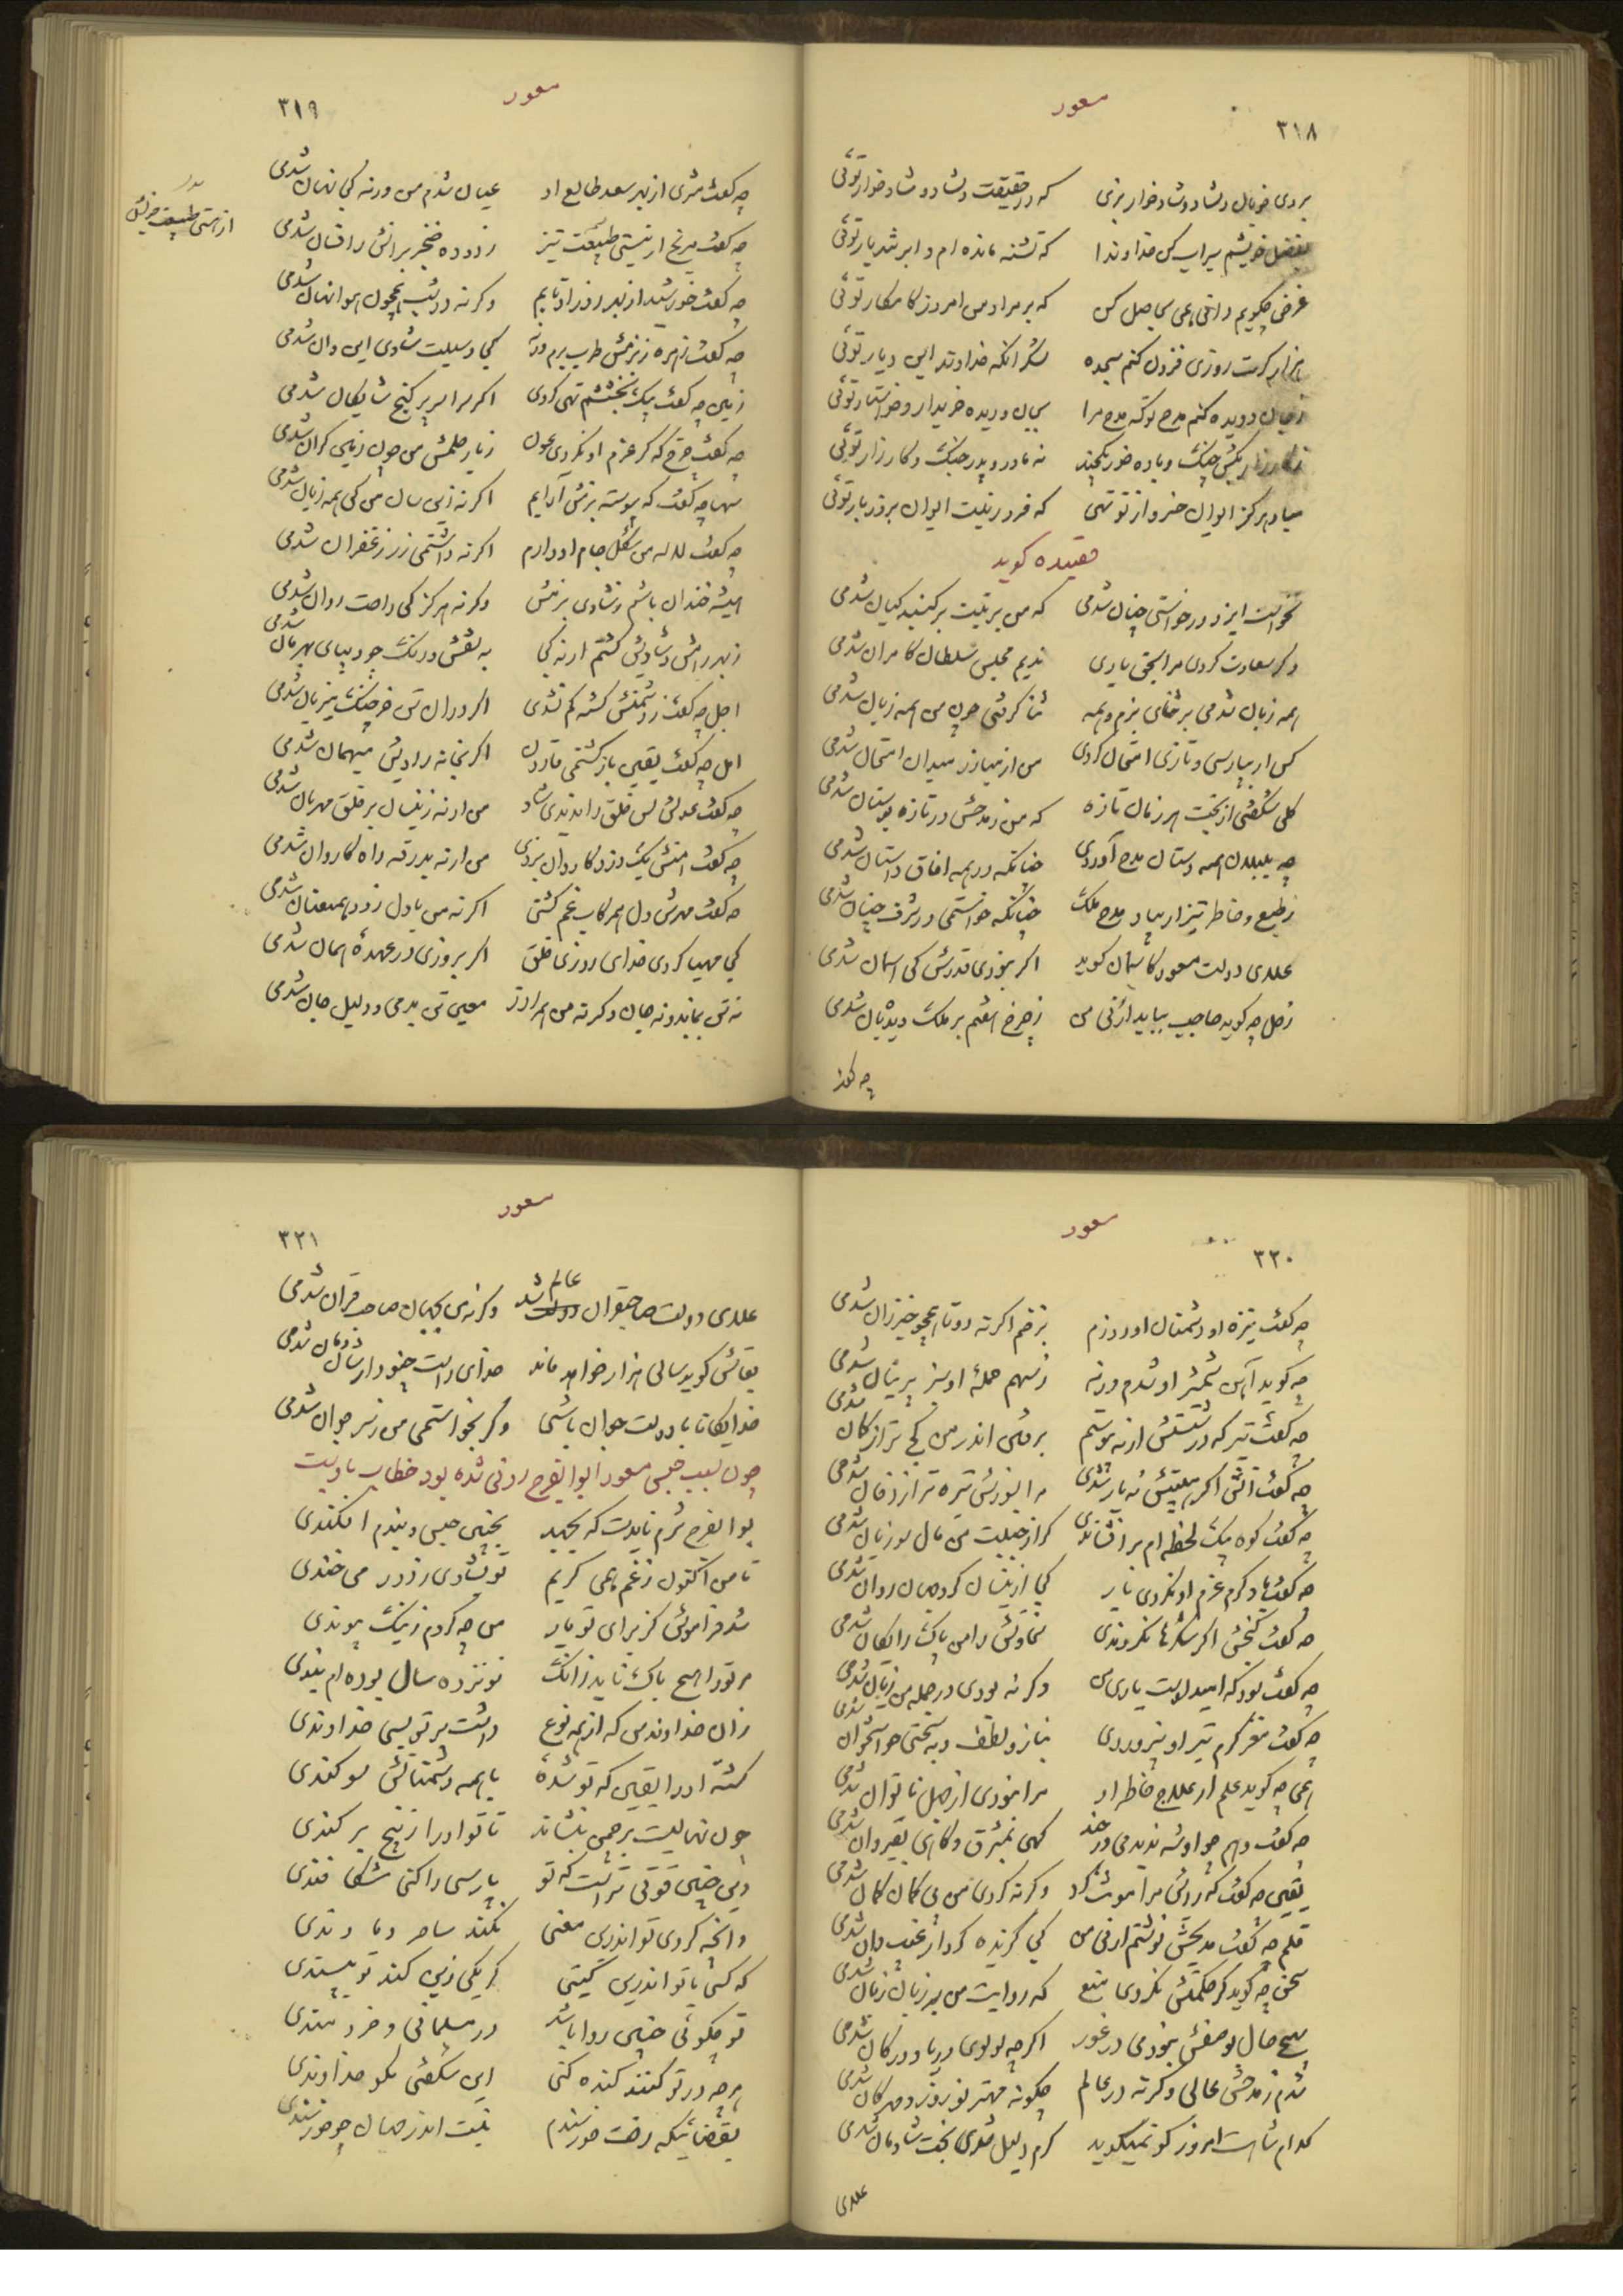 مسعود
۳۱۸
بزی خوبان دلشاد و شاد خوار بزی که در حقیقت دلشاد و شاد خوار توئی
بفضل خویشم سیراب کن خداوندا که تشنه مانده ام و ابر تند بار توئی
غرض چگویم دانی همی بحاصل کن که بر مراد من امروز کامکار توئی
هزار کرت روزی فزون کنم سجده شکر آنکه خداوند این دیار توئی
ز جان و دیده کنم مدح تو که مدح مرا بجان و دیده خریدار و خواستار توئی
مباد هرگز ایوان خسرو از تو تهی که فر و زینت ایوان بروز بار توئی
قصیده گوید
نخواست ایزد ور خواستی چنان شدمی که من برتبت بر گنبد کیان شدمی
وگر سعادت کردی مرا بحق یاری ندیم مجلس سلطان کامران شدمی
همه زبان شدمی بر ثنای بزم و همه ثنا گرفتی چون من همه زبان شدمی
کس ار بپارسی و تازی امتحان کردی مرا مبارز میدان امتحان شدمی
گلی شکفتی از بخت هر زمان تازه که من ز مدحش در تازه بوستان شدمی
چه بلبلان همه دستان مدح آوردی چنانکه در همه آفاق داستان شدمی
ز طبع و خاطر تیز ار بیاد مدح ملک چنانکه خواستمی در شرف چنان شدمی
علای دولت مسعود کاسمان گوید اگر نبودی قدرش کی آسمان شدمی
زحل چه گوید حاجب بباید ار نی من ز چرخ هفتم بر ملک دیدبان شدمی
چه گفت
مسعود
۳۱۹
چه گفت مشتری از بهر سعد طالع او عیان شدم من ورنه کی نهان شدمی
چه گفت مریخ ار نیستی طبیعت تیز زدوده خنجر برانش را فسان شدمی
از هستی طبیعت خویش
چه گفت خورشید از بهر روز او تابم وگرنه در شب همچون هوا نهان شدمی
چه گفت زهره ز بزمش طرب برم ورنه کی وسیلت شادی این و آن شدمی
زمین چه گفت بیک بخششم تهی کردی اگر سراسر پر گنج شایگان شدمی
چه گفت چرخ که گر عزم او نکردی عون ز بار حلمش من چون زمین گران شدمی
سها چه گفت که پیوسته بزمش آرایم اگر نه زین سان من کی همه زیان شدمی
چه گفت لاله من شکل جام او دارم اگر نه داشتمی زرد زعفران شدمی
همیشه خندان باشم ز شادی بزمش وگرنه هرگز کی راحت روان شدمی
ز بهر رامش و شادیش گشتم ار نه کی به نقش و رنگ چو دیبای بهرمان شدمی
اجل چه گفت ز دشمنش کشته کم نشدی اگر در آن تن خر چنگ تیز یان شدمی
امل چه گفت یقین باز گشتمی قارون اگر بخانه رادیش میهمان شدمی
چه گفت عدلش پس خلق را ندیدی شاد من ار نه زینسان بر خلق مهربان شدمی
چه گفت امنش یک دزد کاروان بزدی من ار نه بدرقه راه کاروان شدمی
چه گفت مهرش دل همرکاب غم گشتی اگر نه من با دل زود همعنان شدمی
کی مهیا کردی خدای روزی خلق اگر بروزی در عهده امان شدمی
نه تن بماندی نه جان وگرنه من همه را معین تن بدمی و دلیل جان شدمی
مسعود
۳۲۰
چه گفت نیزه او دشمنان او در رزم بزخم اگر نه دوتا همچو خیزران شدمی
چه گوید آهن شمشیر او شدم ورنه ز سهم حمله او نیز پرنیان شدمی
چه گفت تیر که در شستش ار نه پیوستم برفتن اندر من کج تر از کمان شدمی
چه گفت آتش اگر هیبتش نه یار شدی مرا بنورش تیره تر از دخان شدمی
چه گفت کوه بیک لحظه ام بر افشاندی گر از جبلت من مال سوزیان شدمی
چه گفت باد گرم عزم او نکردی یار کی ازینسان گرد جهان روان شدمی
چه گفت گنجش اگر شکرها نکردندی سخاوتش را من پاک رایگان شدمی
چه گفت جود که امید اوست یاری من وگر نه بودی در جمله من زیان شدمی
چه گفت مغز گرم تیر او نپروردی بناز و لطف و به سختی چو استخوان شدمی
همی چه گوید علم ار علاج خاطر او مرا نبودی از جهل ناتوان شدمی
چه گفت وهم چو او شه ندیدمی در هند گهی بمشرق و گاهی بقیروان شدمی
یقین چه گفت که رایش مرا مویت کرد وگر نه کردی من بی گمان گمان شدمی
قلم چه گفت مدیحش نوشتم ار نی من کی گزیده کردار غیب دان شدمی
سخن چه گوید گر حکمتش نکردی منع که روایت من بر زبان زبان شدمی
بهیچ حال بوصفش نبودمی در خور اگر چه لولوی دریا و در کان شدمی
شدم ز مدحش عالی وگرنه در عالم چگونه مهتر نوروز و مهرگان شدمی
کدام شاهست امروز کو نمیگوید گرم دلیل شدی بخت شادمان شدمی
علای
مسعود
۳۲۱
علای دولت صاحبقران عالم شد وگرنه من بجهان صاحب قران شدمی
بقاش گوید سالی هزار خواهم ماند خدای داست چنو دار شادمان شدمی
خدایگانا با دولت جوان باشی وگر بخواستمی من ز سر جوان شدمی
چون سبب حبس مسعود ابوالفرج رونی شده بود خطاب باوست
بوالفرج شرم نایدت که بجهد بچنین حبس و بندم افکندی
تا من اکنون ز غم همی گریم تو بشادی ز دور می خندی
شد فراموش کز برای تو باز من چه کردم ز نیک پیوندی
مر ترا هیچ باک نایدز آنک نوزده سال بوده ام بندی
زان خداوند من که از همه نوع داشت بر تو بسی خداوندی
گشته او را یقین که تو شده ای با همه دشمنانش سوگندی
چون نهالیت بر چمن بنشاند تا تو او را ز بیخ بر کندی
وین چنین قوتی تراست که تو پارسی را کنی شکاوندی
وانچه کردی تو اندرین معنی نکند ساحر دماوندی
که کس با تو اندرین گیتی گر یکی زین کند تو نپسندی
تو چگوئی چنین روا باشد در مسلمانی و خردمندی
هر چه در تو کنند کنده کنی این شگفتی نگو خداوندی
بقضائیکه رفت خورسندم نیست اندر جهان چو خورسندی